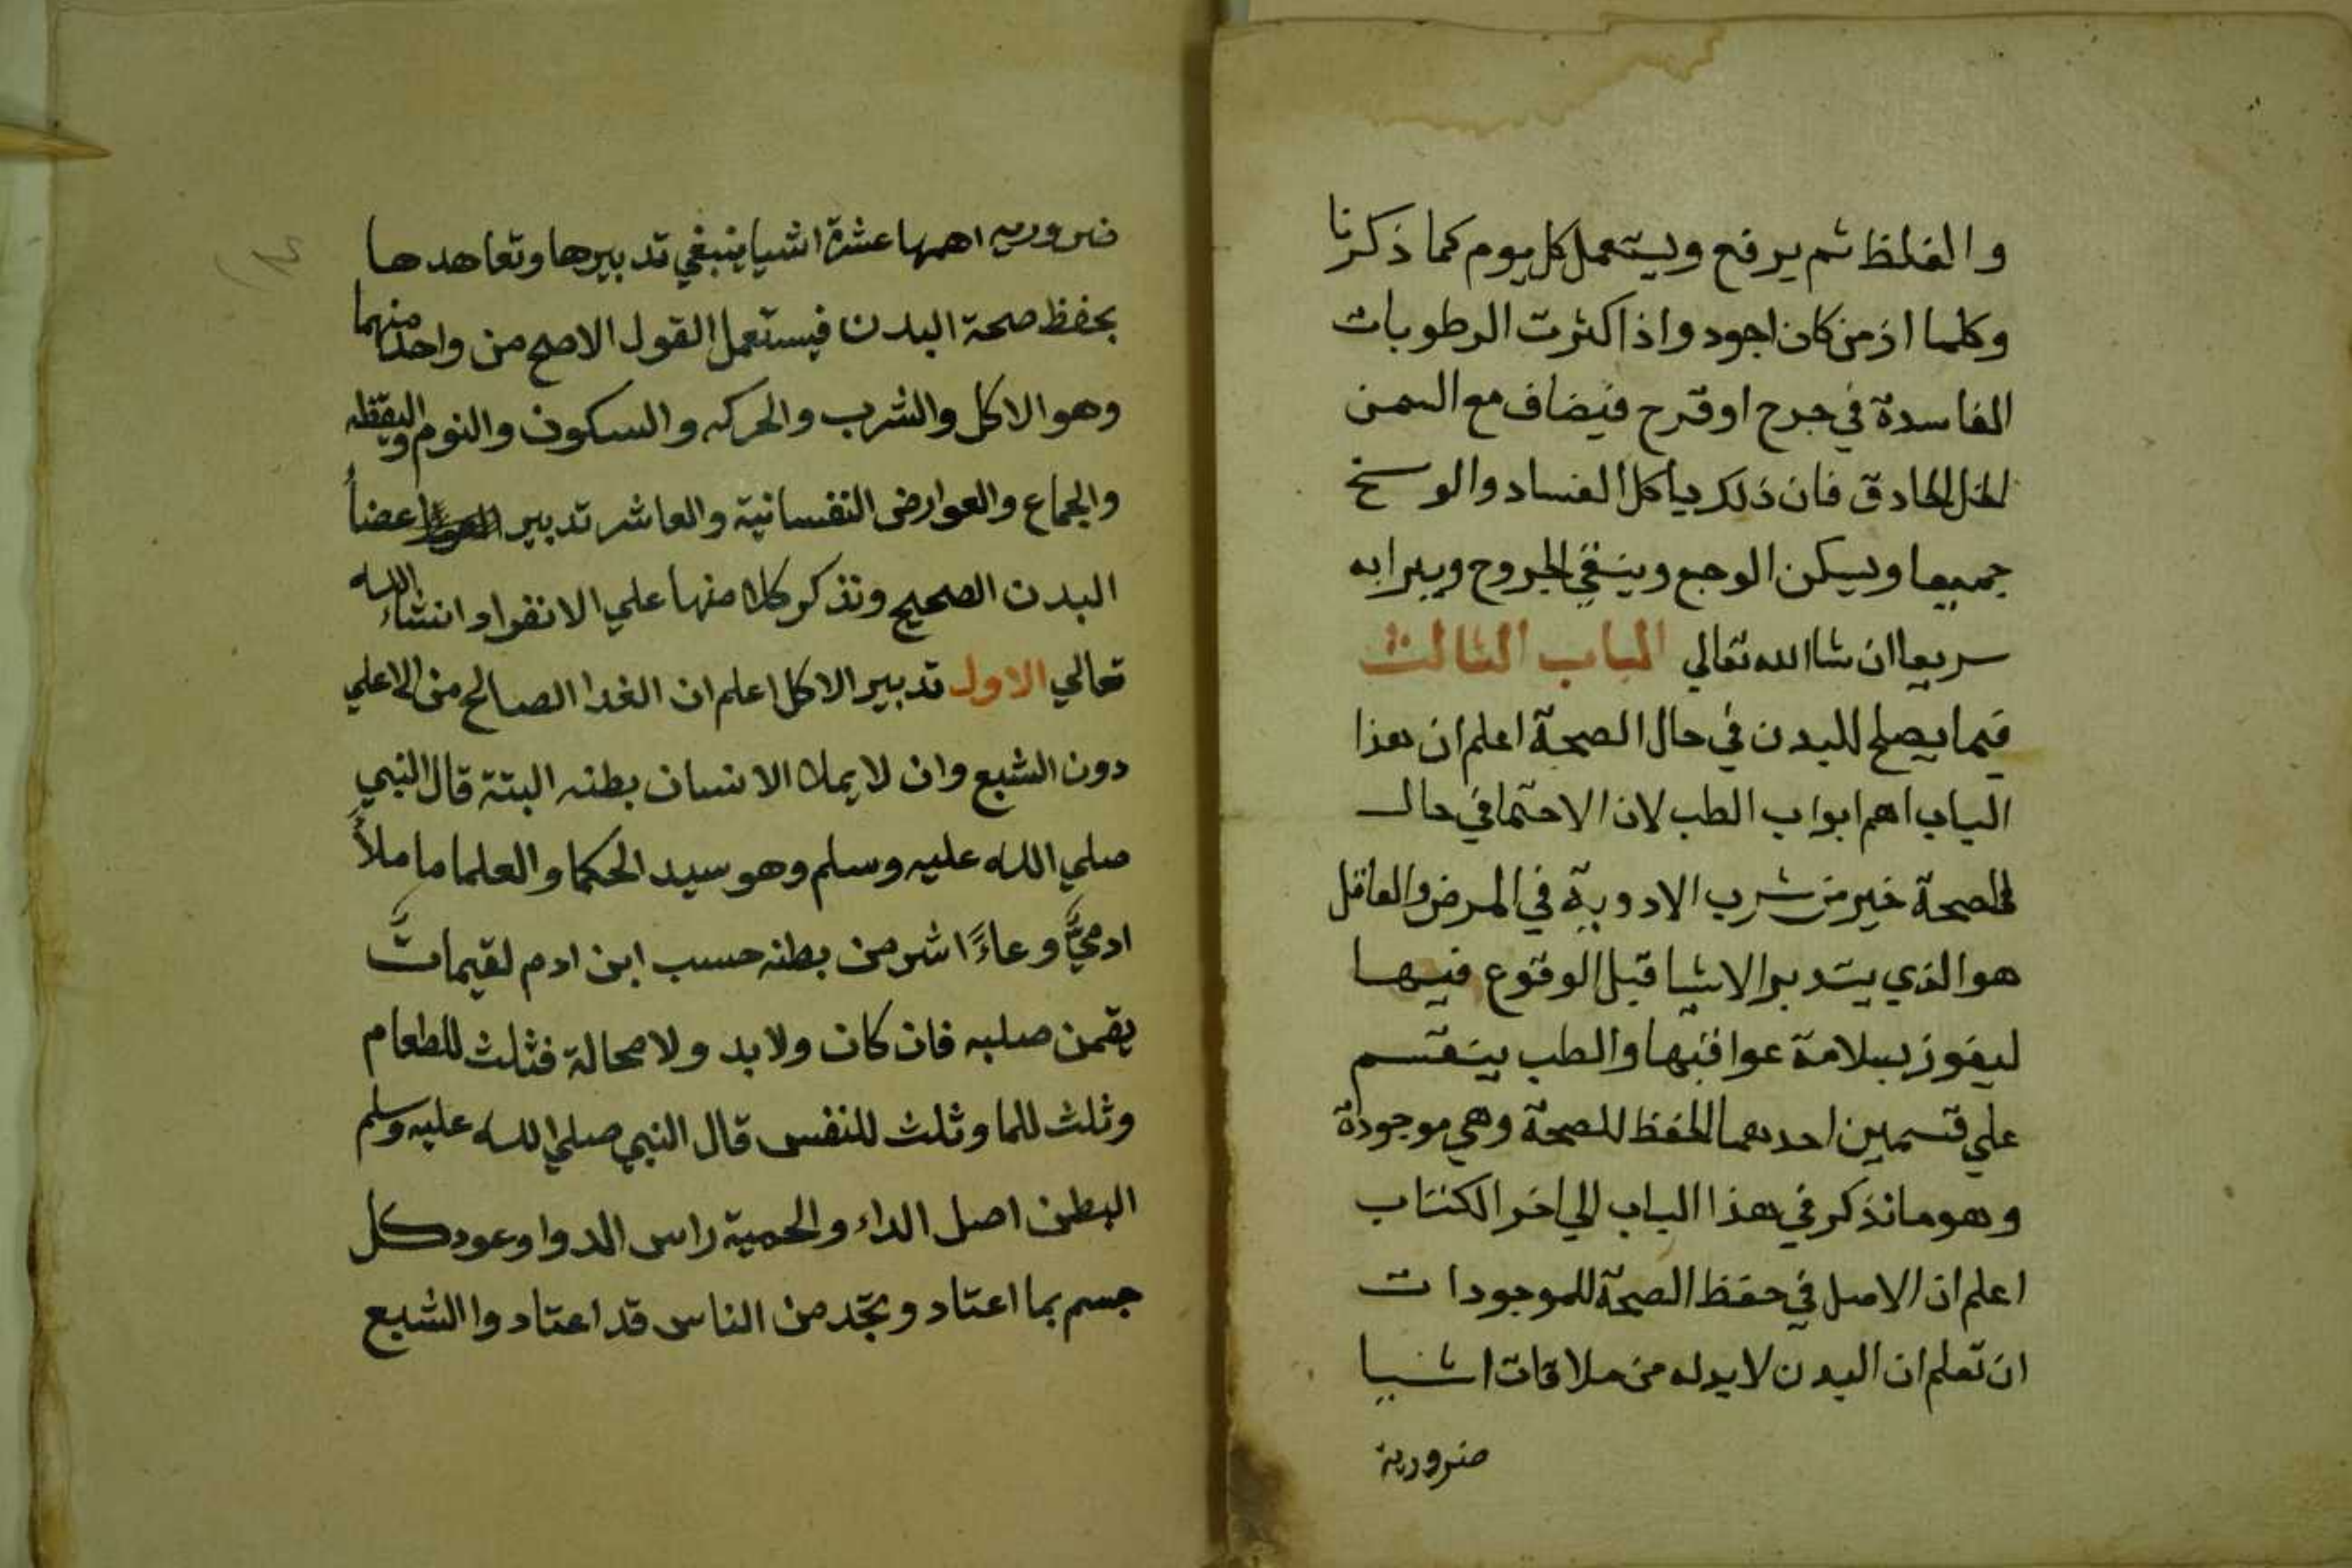 والغلظ ثم يرفع ويستعمل كل يوم كما ذكرنا
وكلما ازمن كان اجود واذا كثرت الرطوبات
الفاسدة في جرح او قرح فيضاف مع السمن
الخل الحادق فان ذلك ياكل الفساد والوسخ
جميعا ويسكن الوجع وينقي الجروح ويبرا به
سريعا ان شا الله تعالي الباب الثالث
فيما يصلح للبدن في حال الصحة اعلم ان هذا
الباب اهم ابواب الطب لان الاحتما في حال
الصحة خير من شرب الادوية في المرض والعاقل
هو الذي يتدبر الاشيا قبل الوقوع فيها
ليفوز بسلامة عواقبها والطب ينقسم
علي قسمين احدهما الحفظ للصحة وهي موجودة
وهو ما نذكر في هذا الباب الي اخر الكتاب
اعلم ان الاصل في حفظ الصحة للموجودات
ان تعلم ان البدن لابد له من ملاقات اشيا
ضرورية
ضروريه اهمها عشرة اشيا ينبغي تدبيرها وتعاهدها
بحفظ صحة البدن فيستعمل القول الاصح من واحد منهما
وهو الاكل والشرب والحركه والسكون والنوم واليقظه
والجماع والعوارض النفسانية والعاشر تدبير اعضاً
البدن الصحيح ونذكر كلا منها علي الانفراد انشاء الله
تعالي الاول تدبير الاكل اعلم ان الغدا الصالح من
دون الشبع وان لا يملا الانسان بطنه البتة قال النبي
صلي الله عليه وسلم وهو سيد الحكما والعلما ما ملأ
ادميٌّ وعاءً اشر من بطنه حسب ابن ادم لقيماتٌ
يقمن صلبه فان كان ولابد ولا محالة فثلث للطعام
وثلث للما وثلث للنفس قال النبي صلي الله عليه وسلم
البطن اصل الداء والحمية راس الدوا وعود كل
جسم بما اعتاد وتجد من الناس قد اعتادوا الشبع